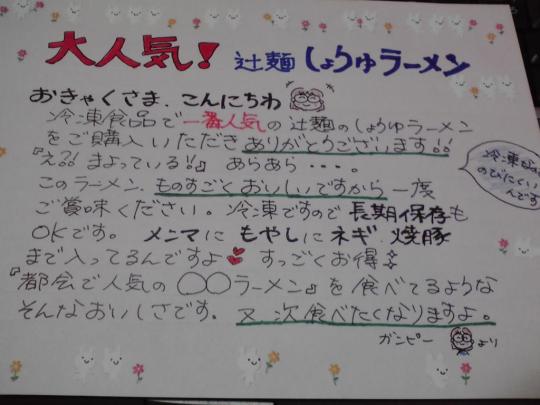 大人気! 辻麺 しょうゆラーメン
おきゃくさま、こんにちわ
冷凍食品で一番人気の辻麺のしょうゆラーメン
をご購入いただきありがとうございます!!
『え?! まよっている!!』 あらあら・・・。
このラーメン、ものすごくおいしいですから一度
ご賞味ください。冷凍ですので長期保存も
OKです。 メンマに もやしに ネギ、焼豚
まで入ってるんですよ♥ すっごくお得
『都会で人気の 〇〇ラーメン』を食べてるような
そんなおいしさです。 又 次食べたくなりますよ。
ガンピー より
冷凍
のびにくい
んです